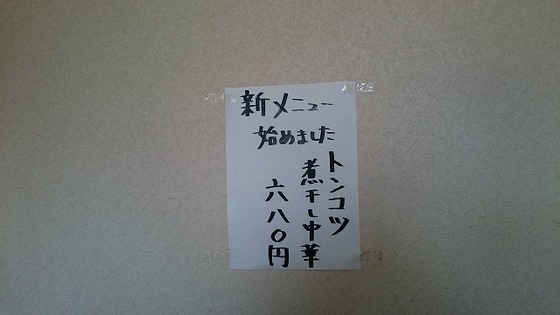 新メニュー
始めました
トンコツ
煮干し中華
六八〇円